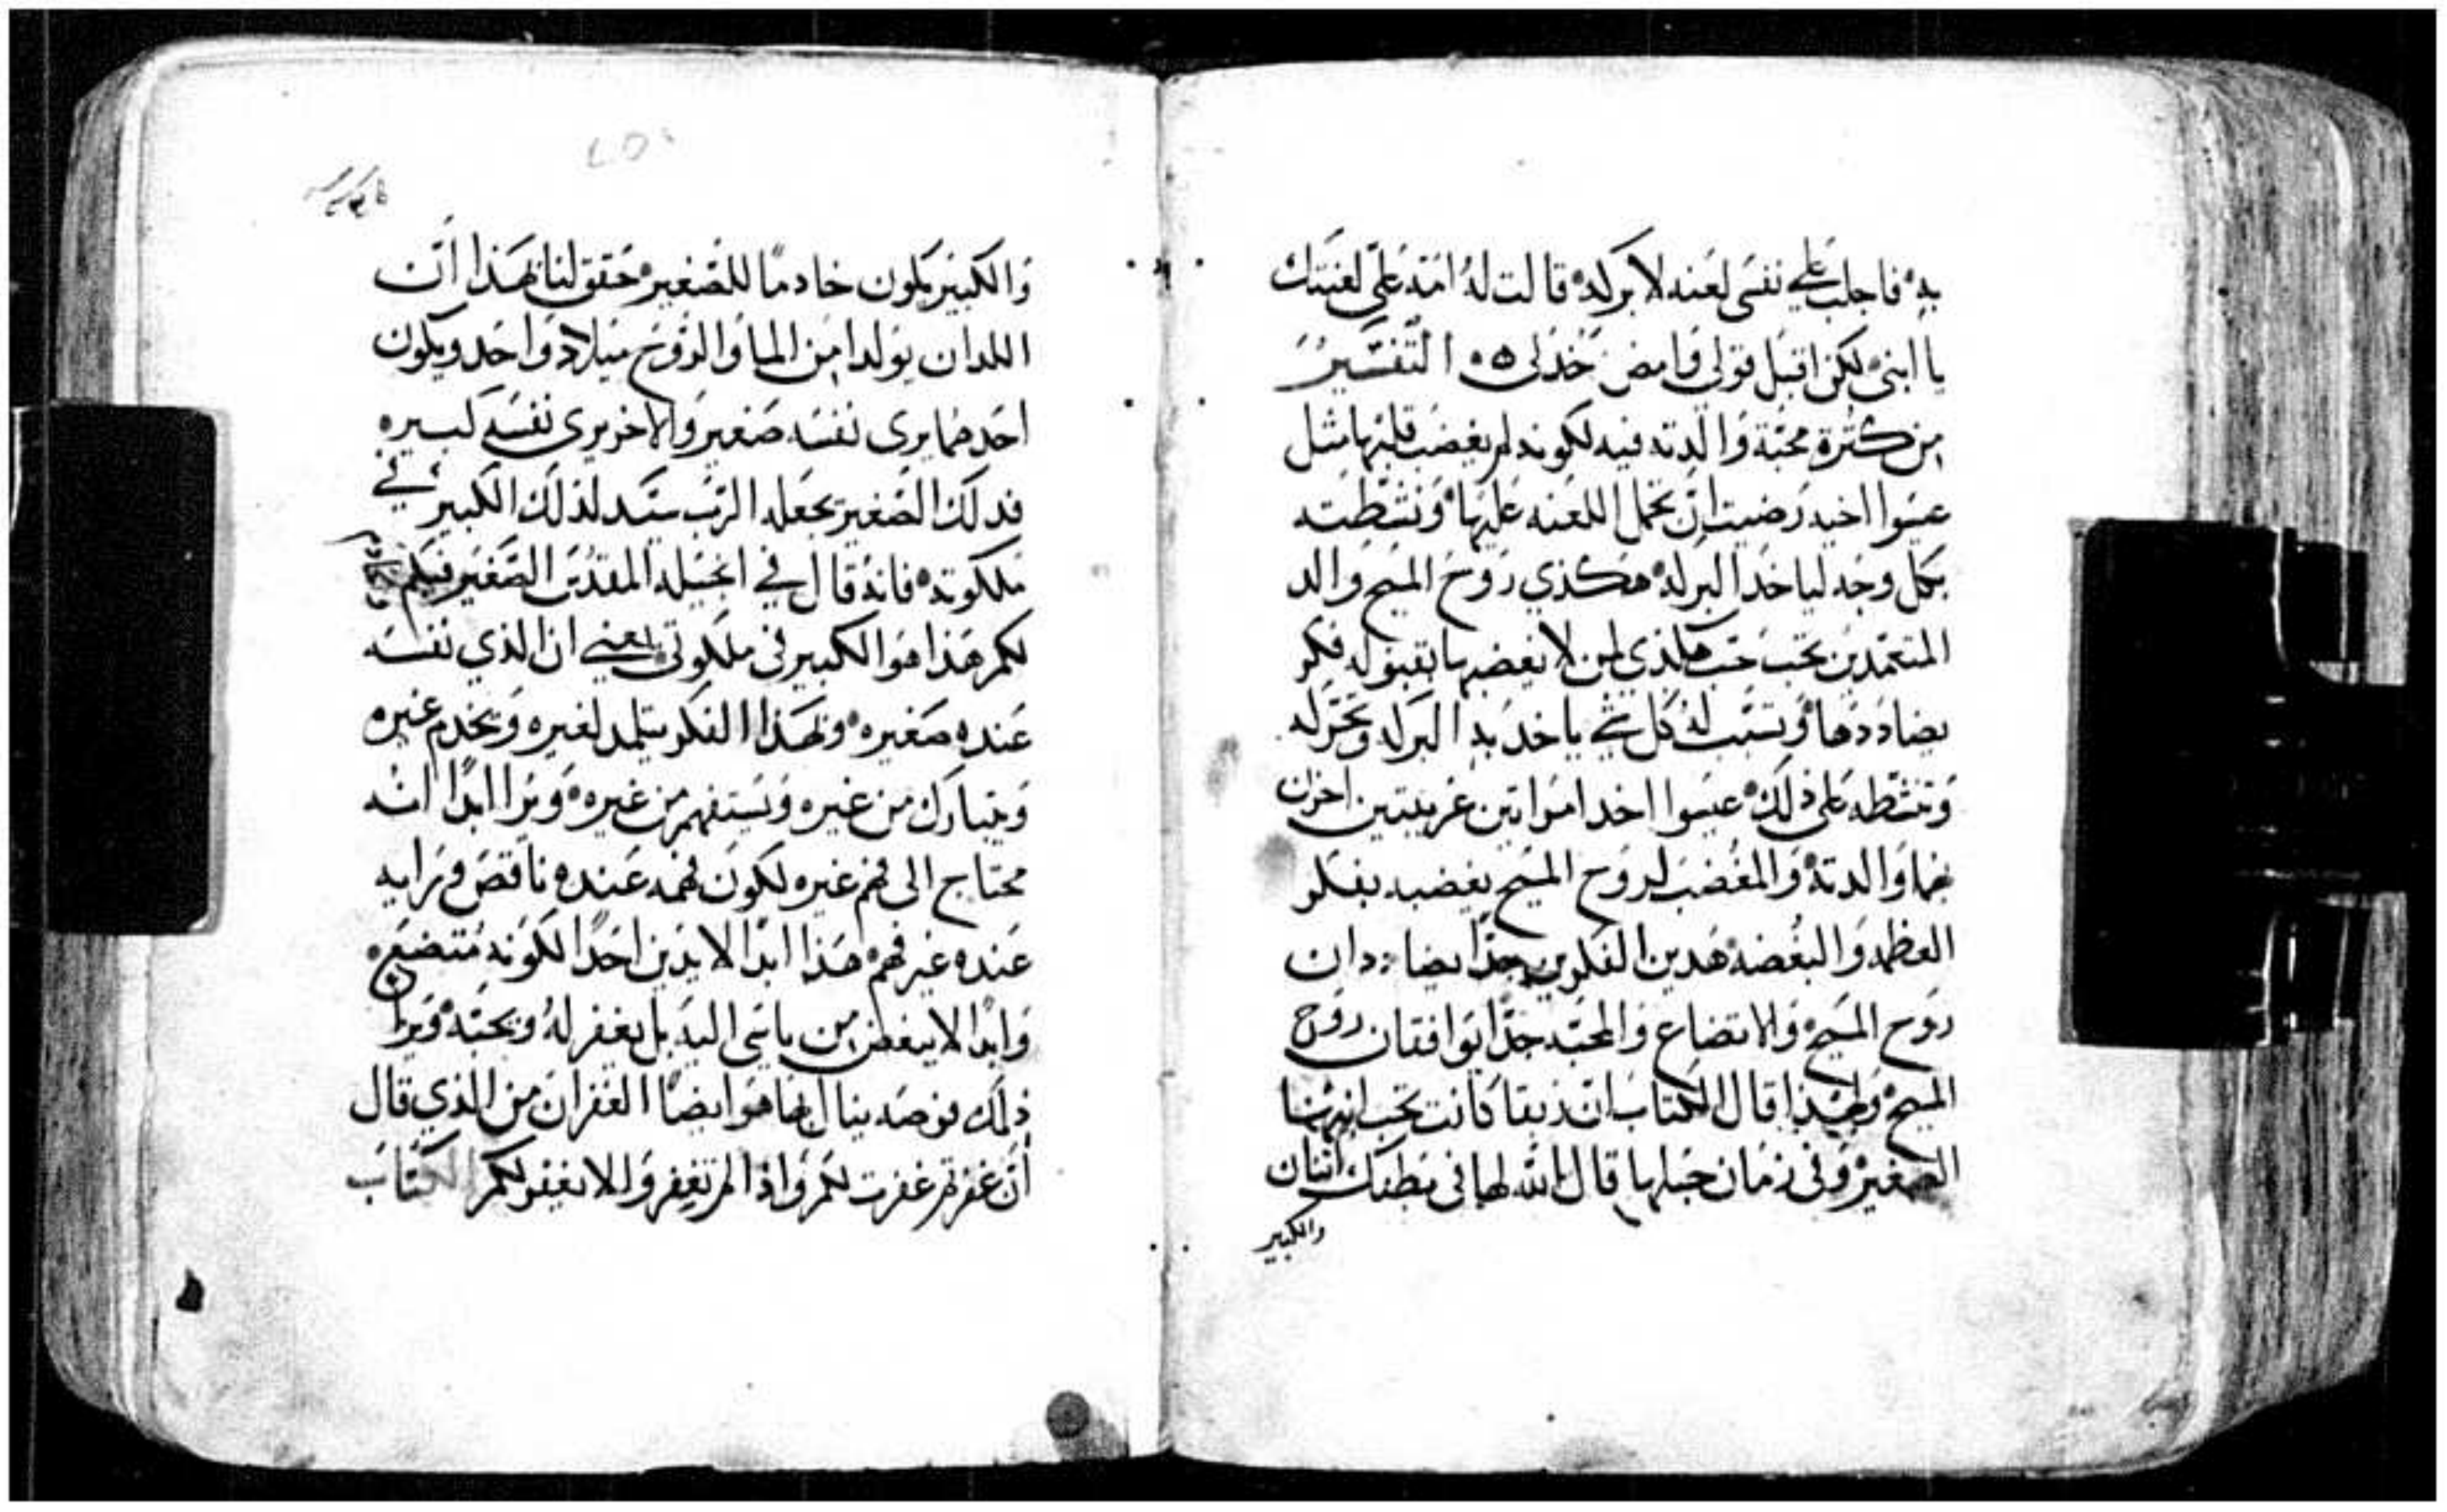 به فاجلب على نفسى لعنه لا بركه قالت له امه علىّ لعنتك
يا ابنى لكن اقبل قولى وامض خدلى ه التفسير
من كثرة محبة والدته فيه لكونه لم يغضب قلبها مثل
عيسوا اخيه رضيت ان تحمل اللعنه عليها ونشطته
بكل وجه لياخد البركه هكذي روح المسيح والد
المتعمدين تحب حب هكذي لمن لا يغضبها بقبوله فكر
يضاددها وتسبب له كل شي ياخد به البركه وتحركه
وتنشطه على ذلك عيسوا اخد امراتين غريبتين احزن
بهما والدته والمغضب لروح المسيح يغضبه بفكر
العظمه والبغضه هدين الفكرين جدًا يضاددان
روح المسيح والاتضاع والمحبه جدًا يوافقان روح
المسيح ولهذا قال الكتاب ان ربقا كانت تحب ابنها
الصغير وفى زمان حبلها قال الله لها فى بطنك اتنان
والكبير
والكبير يكون خادمًا للصغير حقق لنا بهذا ان
اللدان يولدا من الما والروح ميلاد واحد ويكون
احدهما يرى نفسه صغير والاخر يرى نفسه كبيره
فدلك الصغير يجعله الرب سيد لذلك الكبير في
ملكوته فانه قال في انجيله المقدس الصغير فيكم
لكم هذا هوا الكبير فى ملكوتى يعني ان الذي نفسه
عنده صغيره وبهذا الفكر يتلمد لغيره ويخدم غيره
ويتبارك من غيره ويستفهم من غيره ويرا ابدًا انه
محتاج الى فهم غيره لكون فهمه عنده ناقص ورايه
عنده غير فهم هذا ابدًا لا يدين احدًا لكونه متضع
وابدًا لا يبغض من ياسى اليه بل يغفر له ويحبه ويرا
ذلك فرصه ينال بها هوا ايضًا الغفران من الذي قال
ان غفرتم غفرت لكم واذا لم تغفروا لا نغفر لكم الكتاب